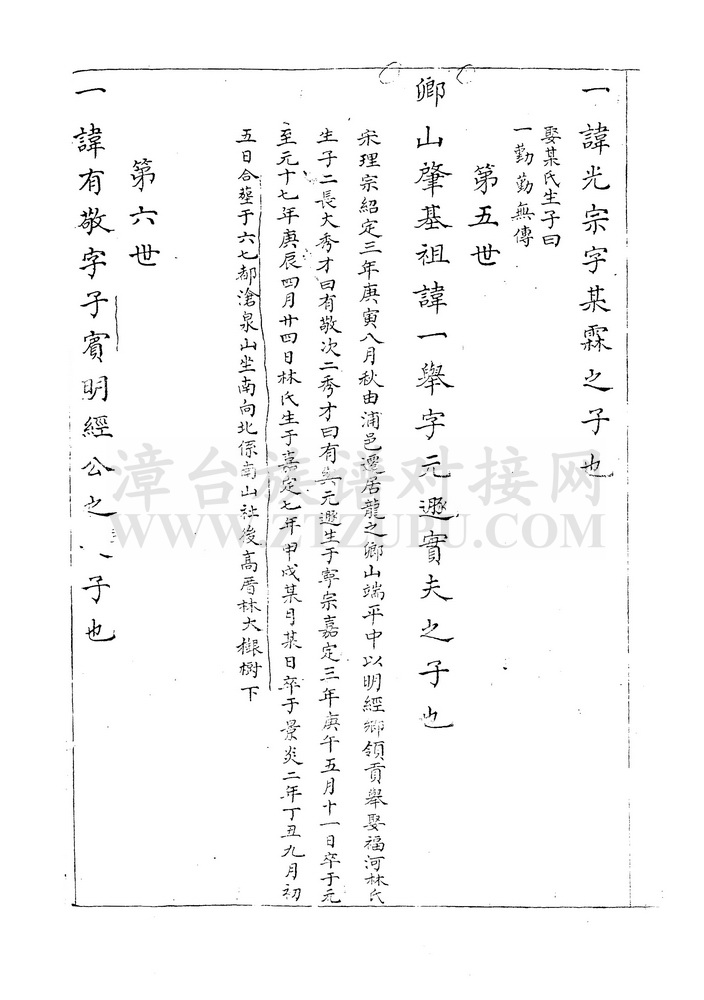 一諱光宗字某霖之子也
娶某氏生子曰
一勤勤無傳
第五世
鄉山肇基祖諱一舉字元遜實夫之子也
宋理宗紹定三年庚寅八月秋由浦邑遷居龍之鄉山端平中以明經鄉領貢舉娶福河林氏
生子二長大秀才曰有敬次二秀才曰有興元遜生于寧宗嘉定三年庚午五月十一日卒于元
至元十七年庚辰四月廿四日林氏生于嘉定七年甲戌某月某日卒于景炎二年丁丑九月初
五日合塟于六七都滄泉山坐南向北係南山社後高厝林大樹下
第六世
一諱有敬字子賓明經公之子也
漳台族谱对接网
WWW.ZTZUPU.COM